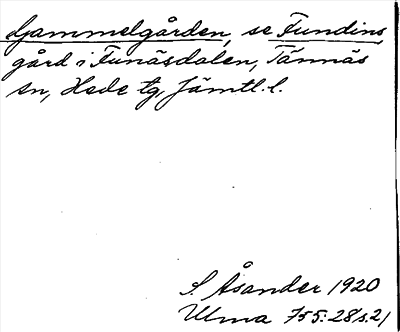 Gammelgården, se Fundins
gård i Funäsdalen, Tännäs
sn, Hede tg, Jämtl. l.
S. Åsander 1920
Ulma 755:28/s.21